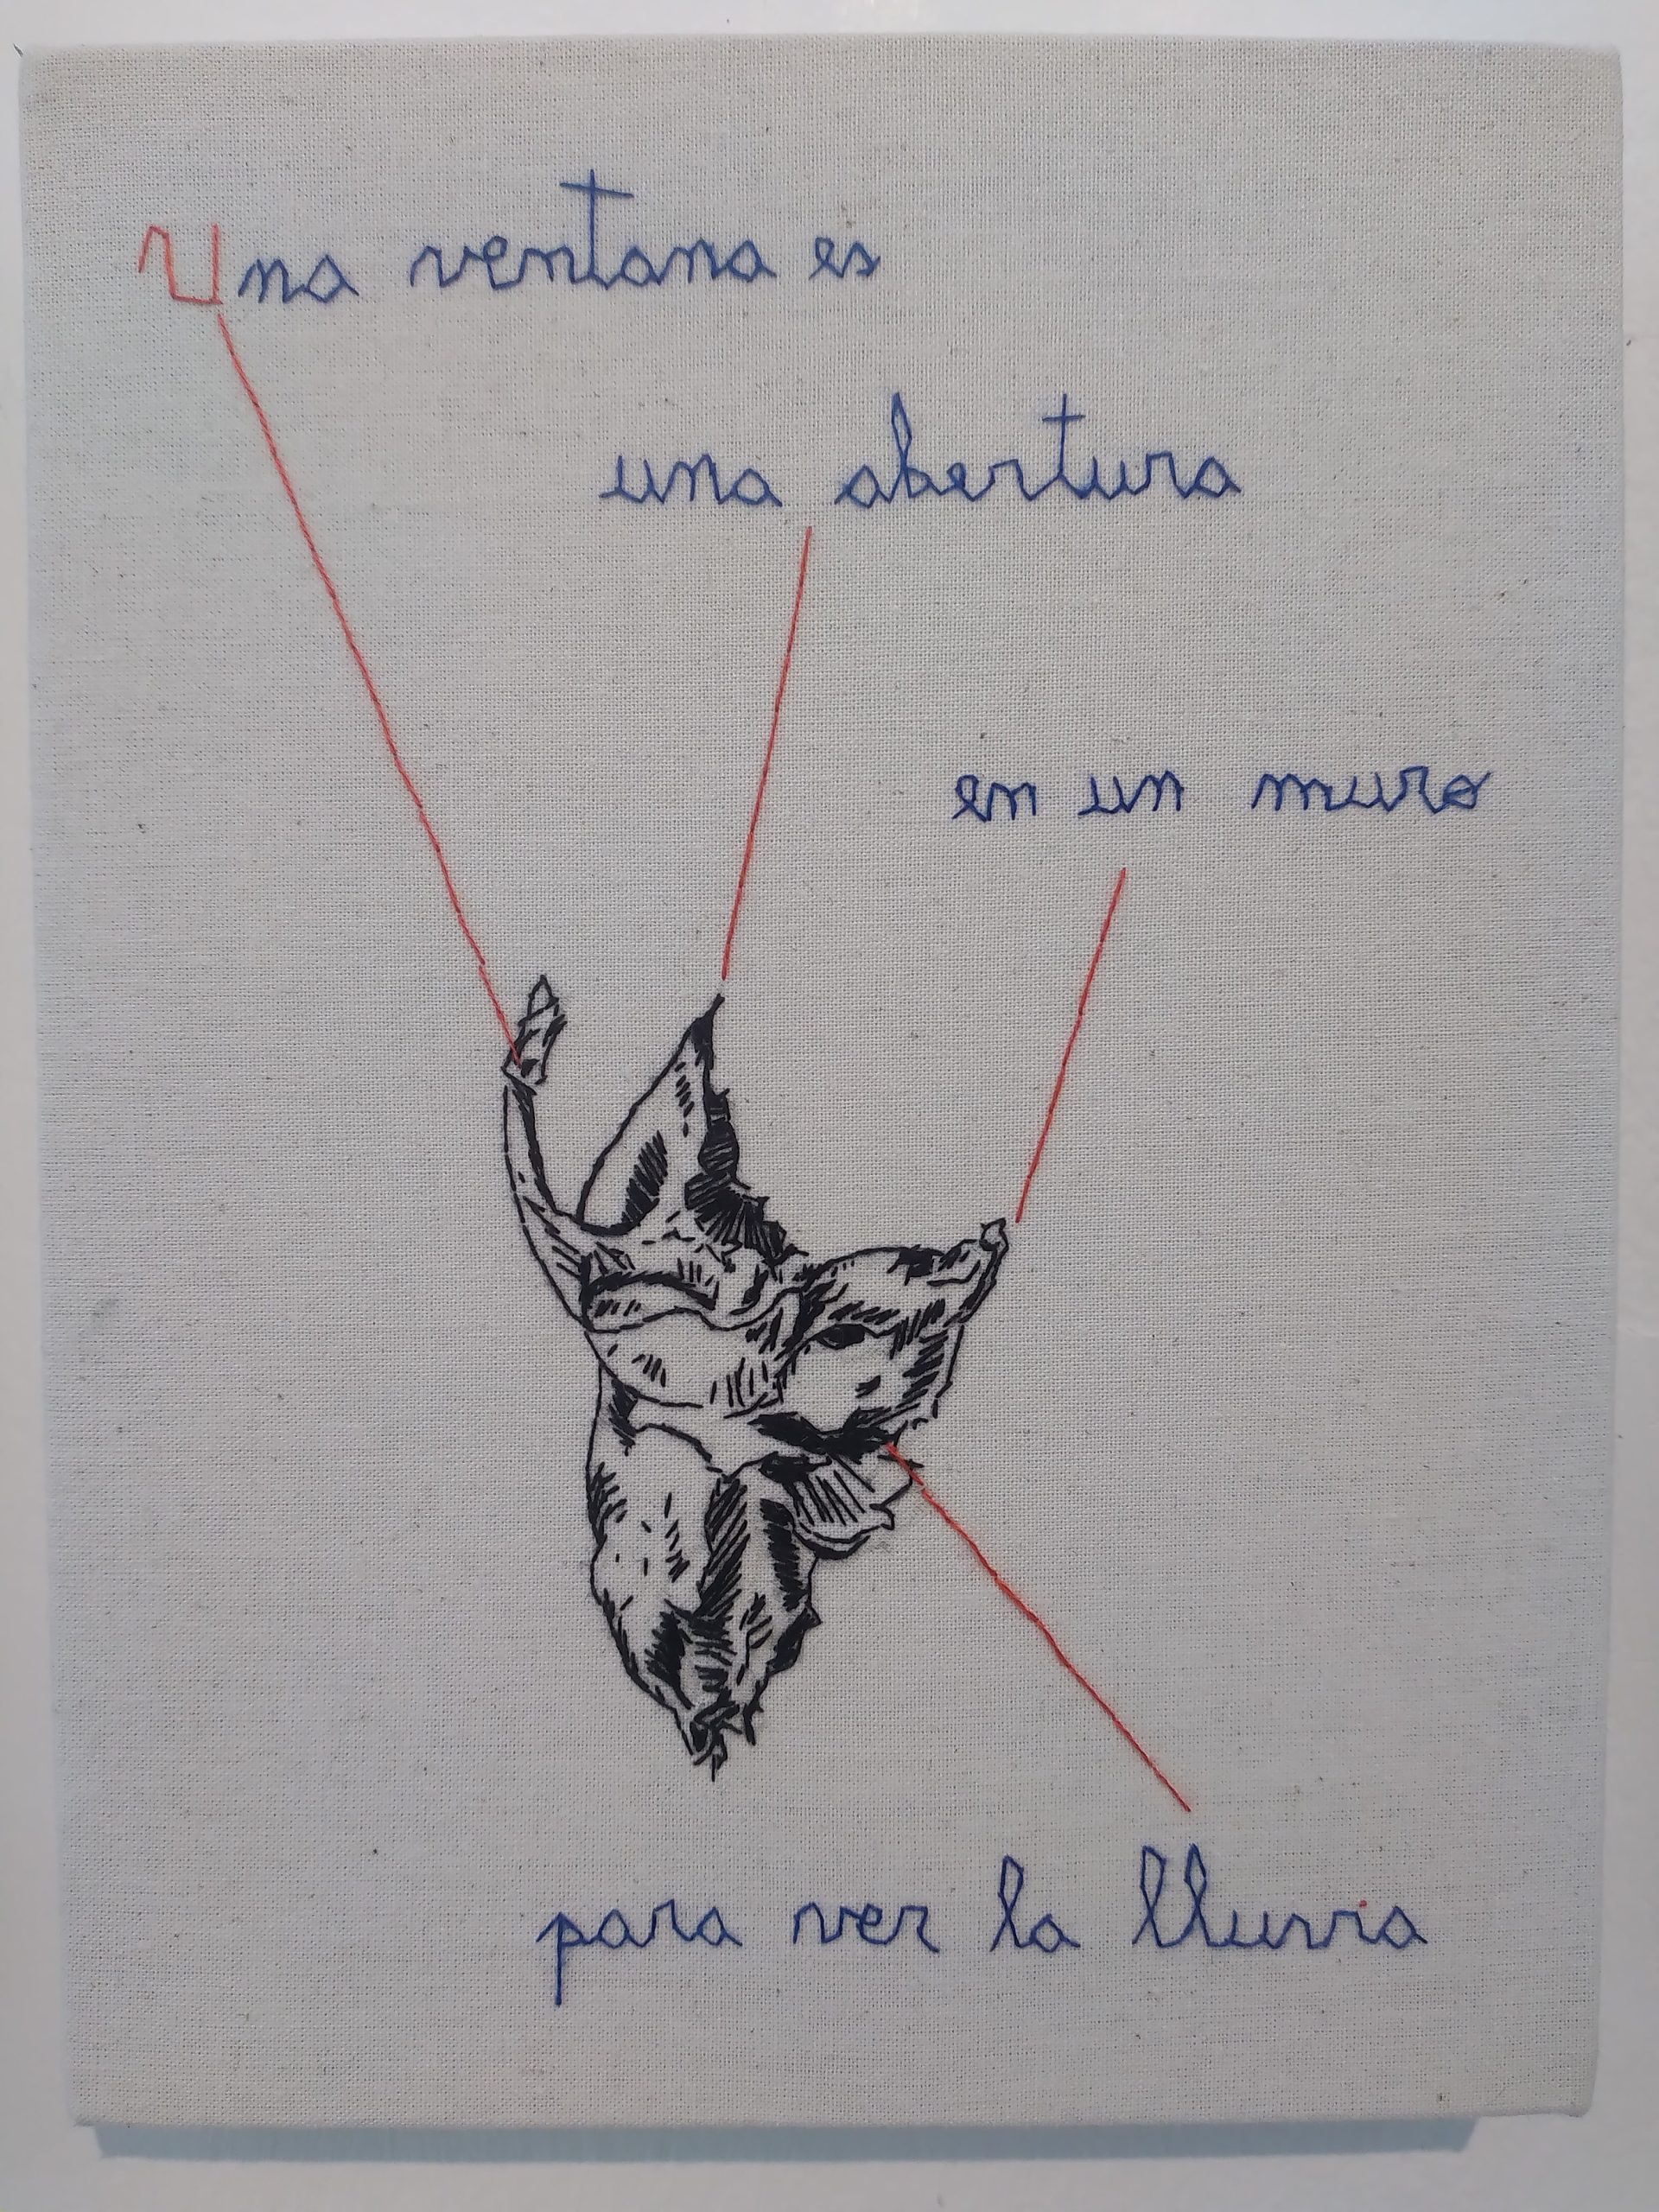 Una ventana es
una abertura
en un muro
para ver la lluvia